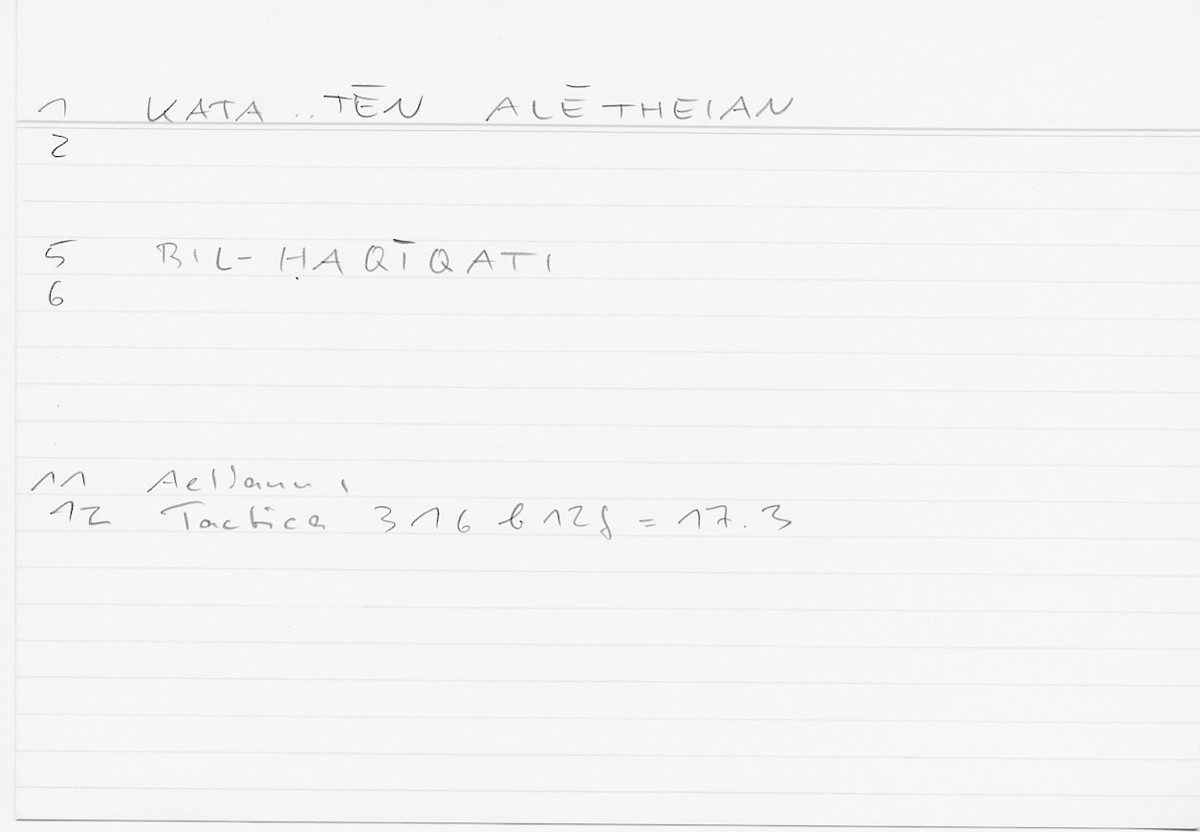 1 KATA .. TĒN ALĒTHEIAN
2
5 BIL-ḤAQĪQATI
6
11
12 Tactica 316 b 12f = 17.3